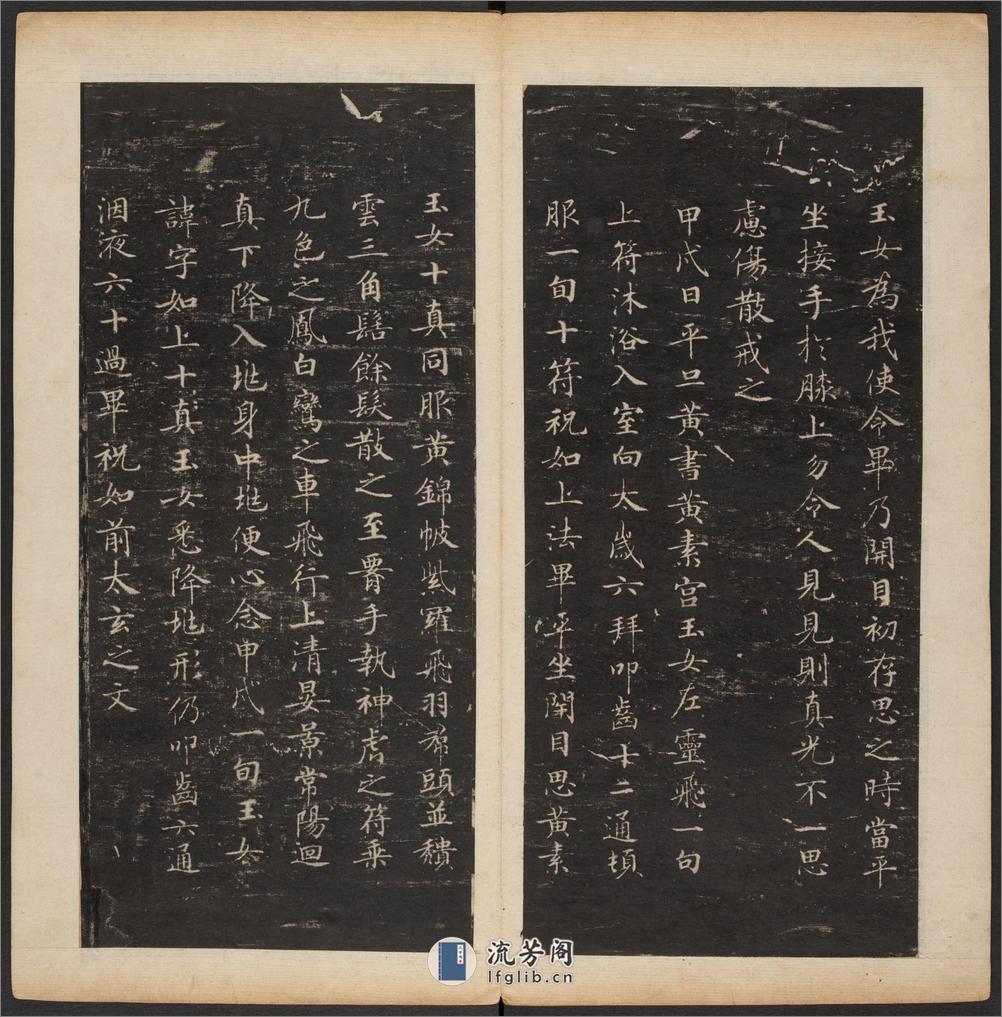 玉女為我使令畢乃開目初存思之時當平
坐接手於膝上勿令人見見則真光不一思
慮傷散戒之
甲戌日平旦黃書黃素宮玉女左靈飛一旬
上符沐浴入室向太歲六拜叩齒十二通頓
服一旬十符祝如上法畢平坐閉目思黃素
玉女十真同服黃錦帔紫羅飛羽帬頭並穨
雲三角髻餘髮散之至胷手執神虎之符乗
九色之鳳白鸞之車飛行上清晏景常陽迴
真下降入某身中某便心念甲戌一旬玉女
諱字如上十真玉女悉降某形仍叩齒六通
咽液六十過畢祝如前太玄之文
流芳阁
lfglib.cn